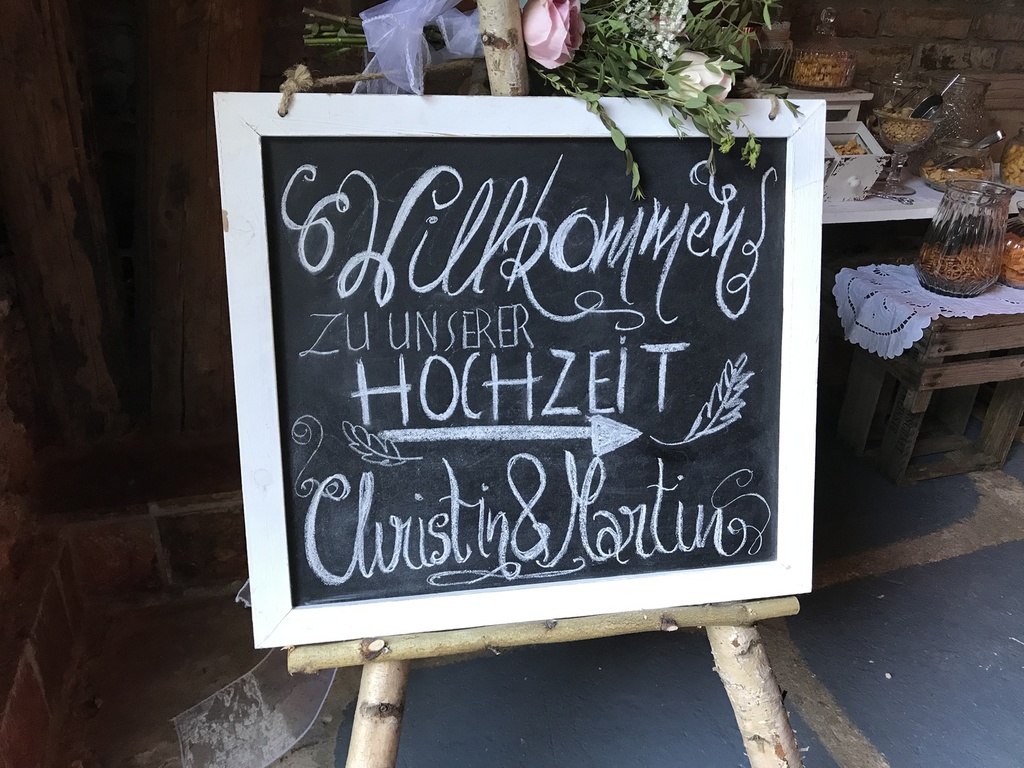 Willkommen
ZU UNSERER
HOCHZEIT
Christin & Martin